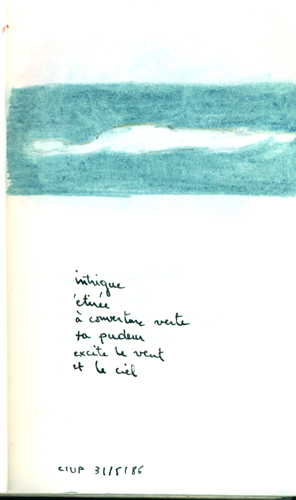 intrigue
étirée
à couverture verte
ta pudeur
excite le vent
et le ciel
CIUP 31/5/86